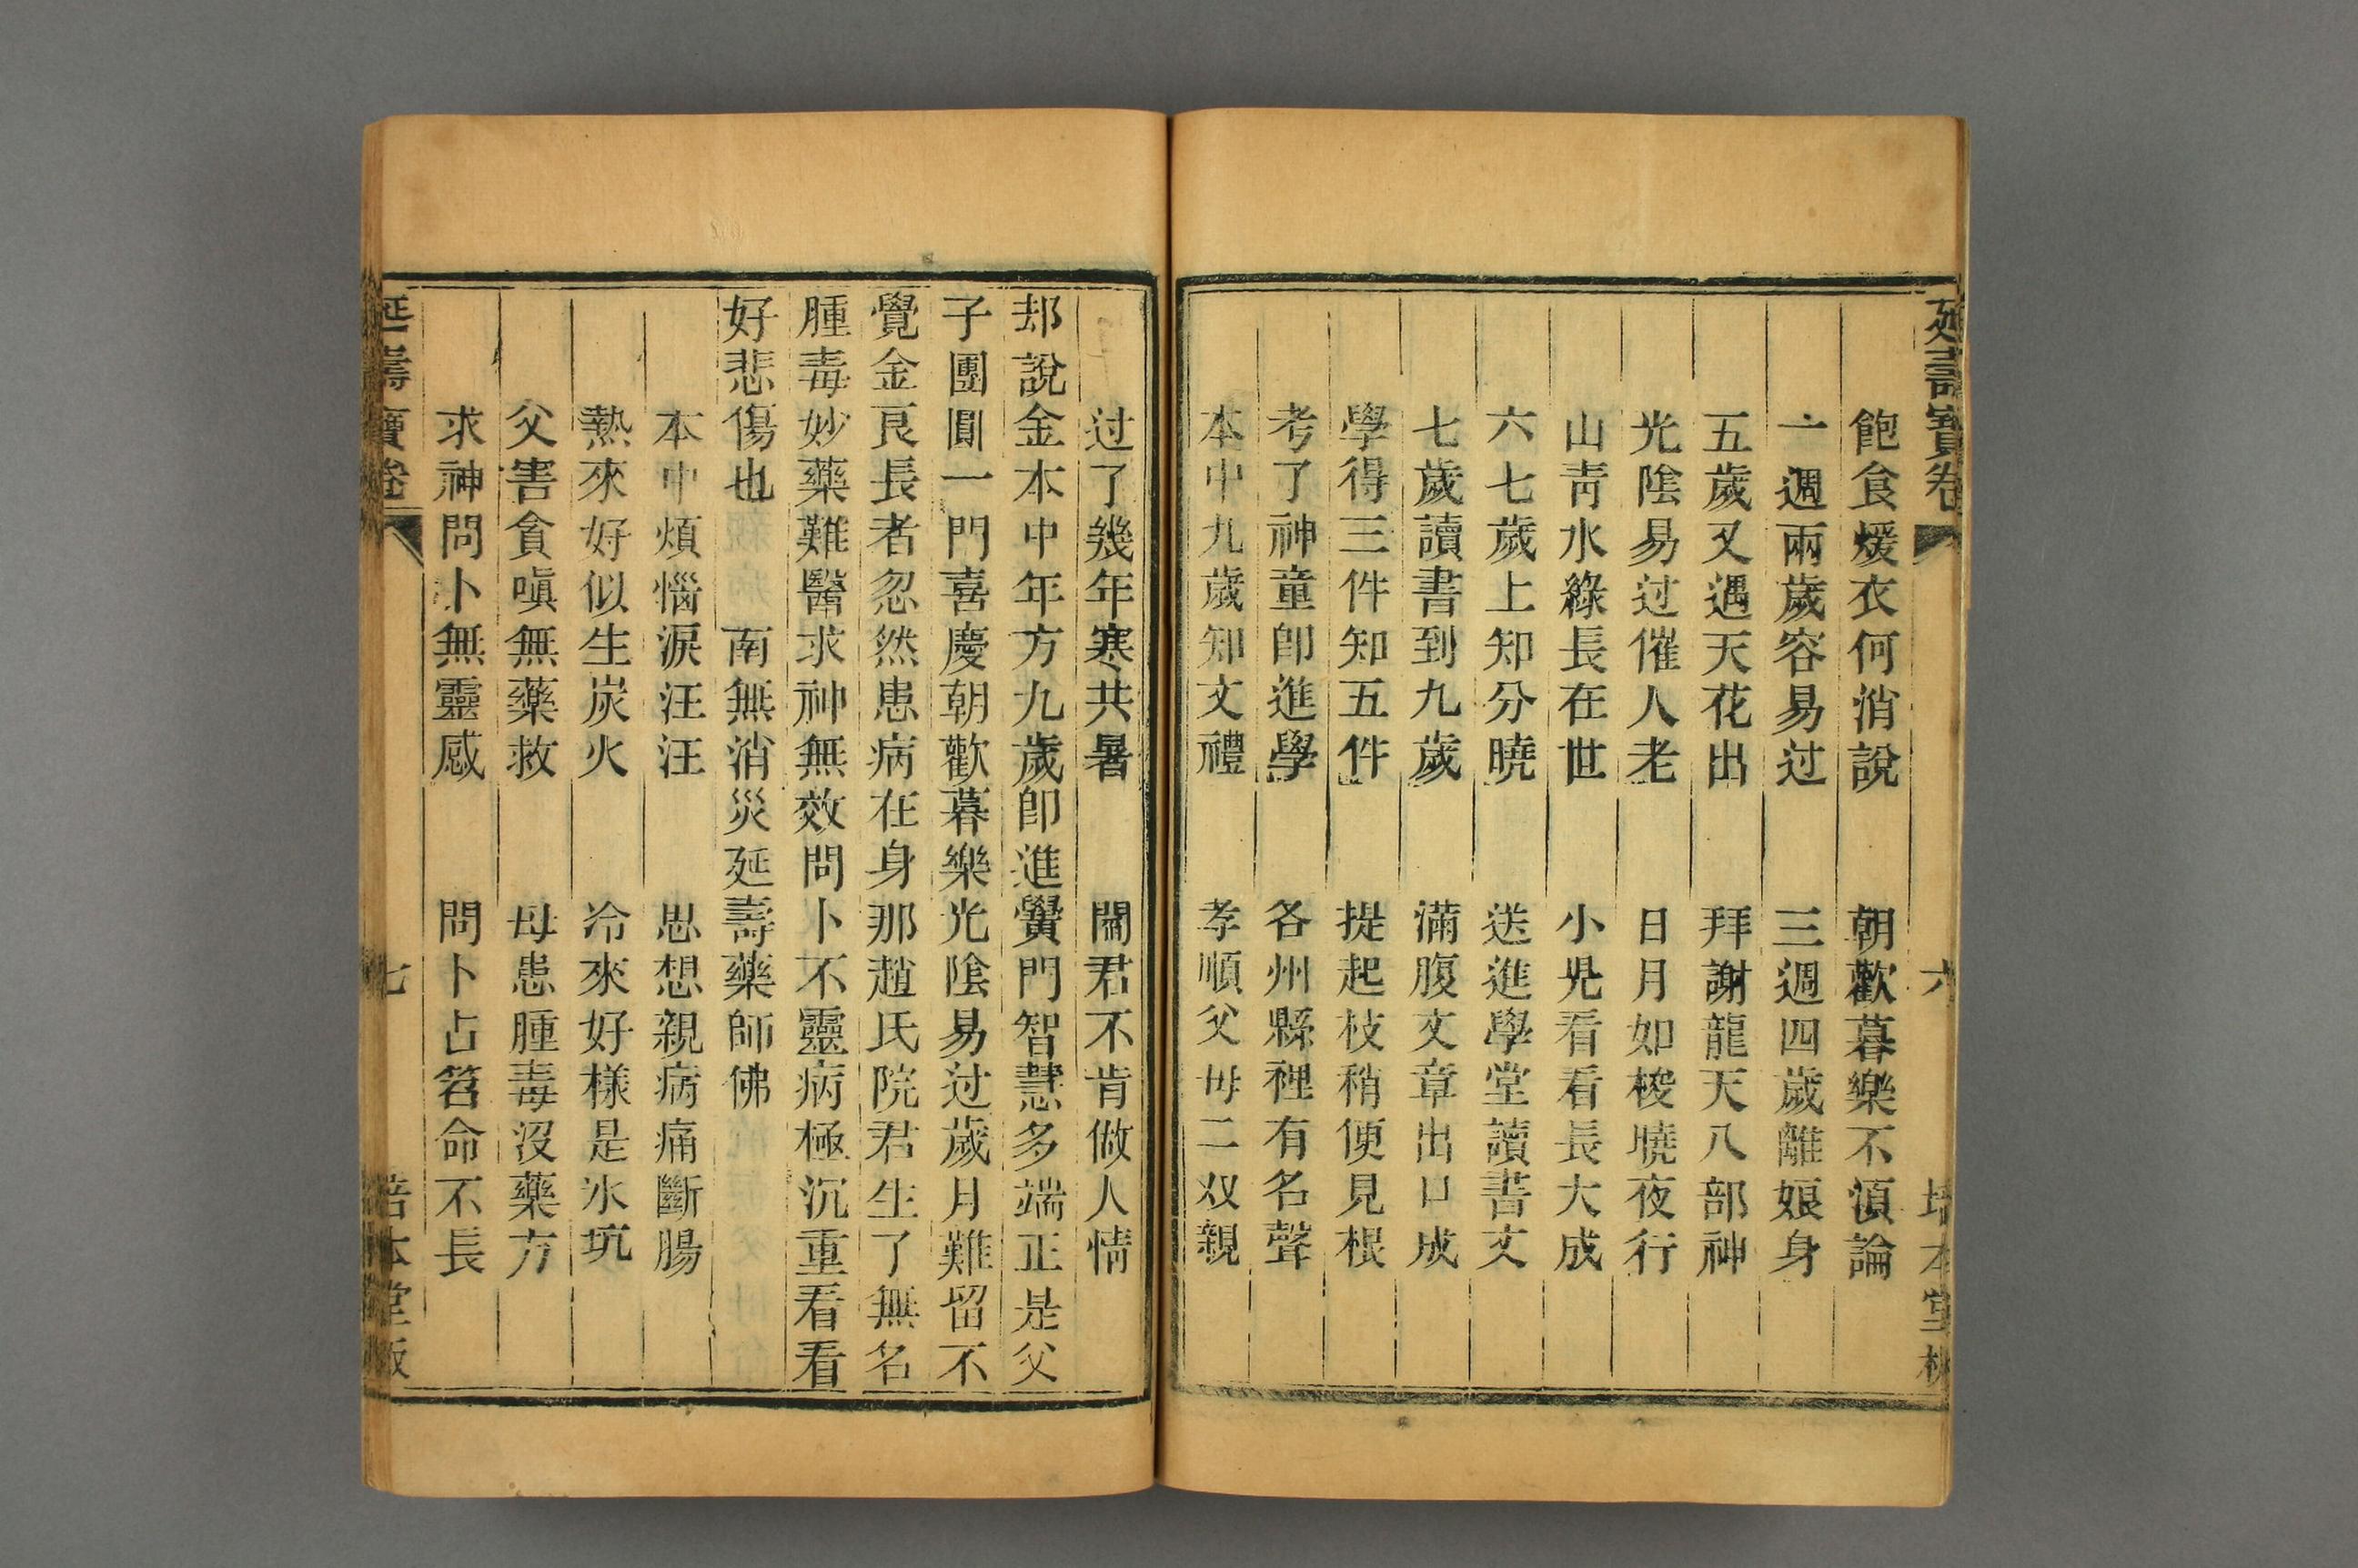 延壽寶卷 六 培本堂板
飽食煖衣何消說 朝歡暮樂不須論
一週兩歲容易过 三週四歲離娘身
五歲又遇天花出 拜謝龍天八部神
光陰易过催人老 日月如梭曉夜行
山靑水綠長在世 小児看看長大成
六七歲上知分曉 送進學堂讀書文
七歲讀書到九歲 滿腹文章出口成
學得三件知五件 提起枝稍便見根
考了神童卽進學 各州縣裡有名聲
本中九歲知文禮 孝順父母二双親
过了幾年寒共暑 閻君不肯做人情
却說金本中年方九歲卽進黌門智慧多端正是父
子團圓一門喜慶朝歡暮樂光陰易过歲月難留不
覺金良長者忽然患病在身那趙氏院君生了無名
腫毒妙藥難醫求神無效問卜不靈病極沉重看看
好悲傷也 南無消災延壽藥師佛
本中煩惱淚汪汪 思想親病痛斷腸
熱來好似生炭火 冷來好樣是氷坑
父害貪嗔無藥救 母患腫毒沒藥方
求神問卜無靈感 問卜占笤命不長
延壽寶卷 七 培本堂板